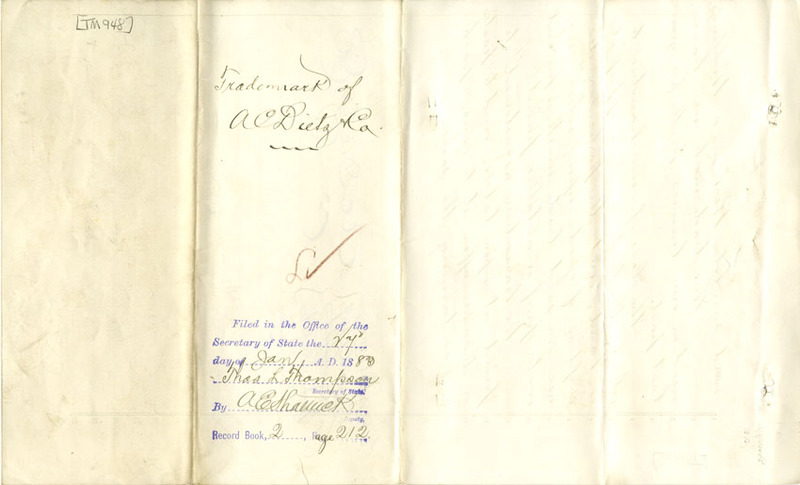 [TM 948]
Trademark of
A C Dietz & Co.
Filed in the Office of the
Secretary of State the 27th
day of Jan, A. D. 1883
Thos L Thompson
Secretary of State.
By A E Shattuck
Deputy.
Record Book, 2, Page 212.